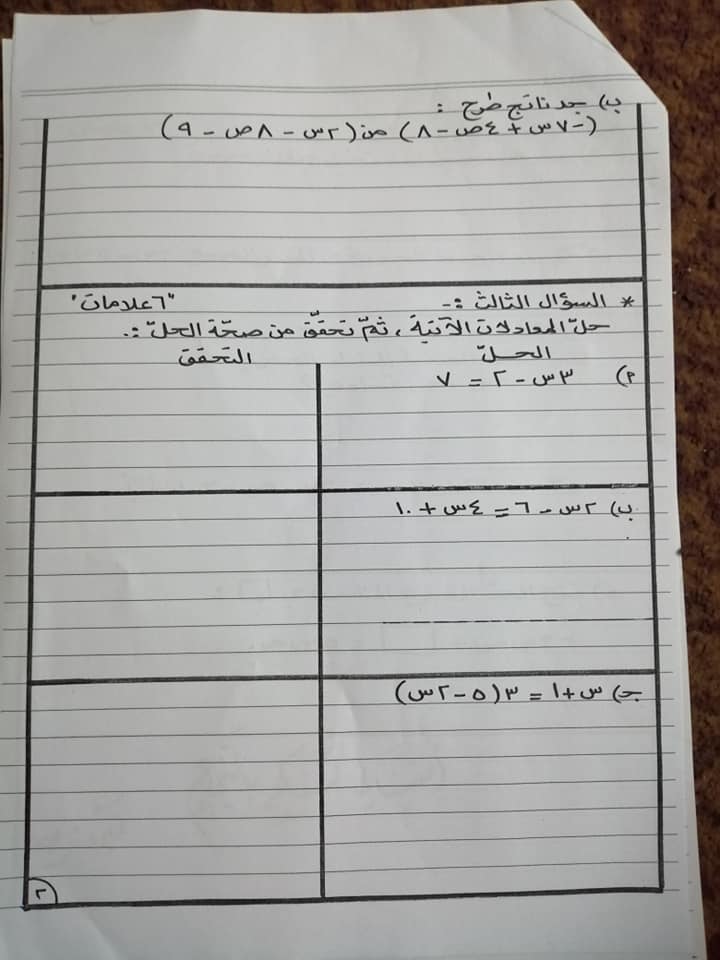 ب) جد ناتج طرح :
(-٧س + ٤ص - ٨) من (٢س - ٨ص - ٩)
* السؤال الثالث :- "٦ علامات"
حلّ المعادلات الآتية ، ثمّ تحقّق من صحّة الحلّ :.
الحلّ التحقق
أ) ٣س - ٢ = ٧
ب) ٢س - ٦ = ٤س + ١٠
جـ) س + ١ = ٣(٥ - ٢س)
٢